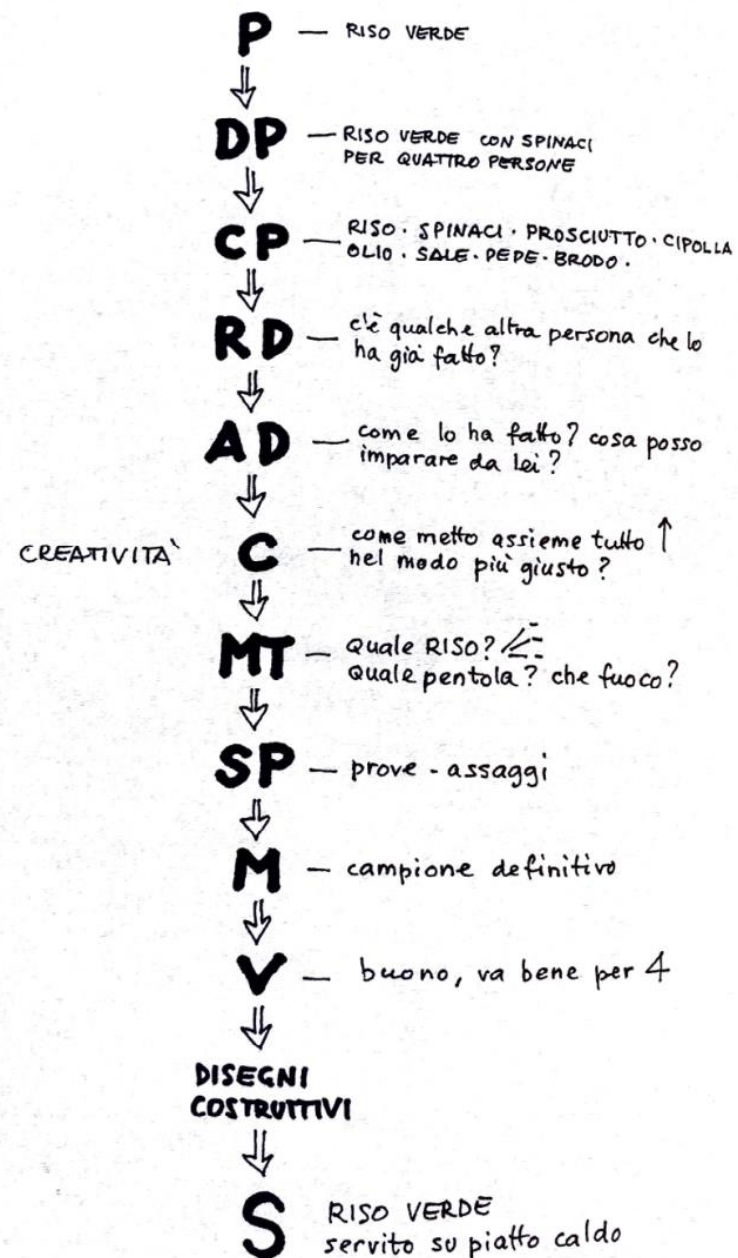 P — RISO VERDE
DP — RISO VERDE CON SPINACI
PER QUATTRO PERSONE
CP — RISO · SPINACI · PROSCIUTTO · CIPOLLA
OLIO · SALE · PEPE · BRODO ·
RD — c'è qualche altra persona che lo
ha già fatto?
AD — come lo ha fatto? cosa posso
imparare da lei?
CREATIVITÀ C — come metto assieme tutto ↑
nel modo più giusto?
MT — Quale RISO?
Quale pentola? che fuoco?
SP — prove - assaggi
M — campione definitivo
V — buono, va bene per 4
DISEGNI
COSTRUTTIVI
S RISO VERDE
servito su piatto caldo